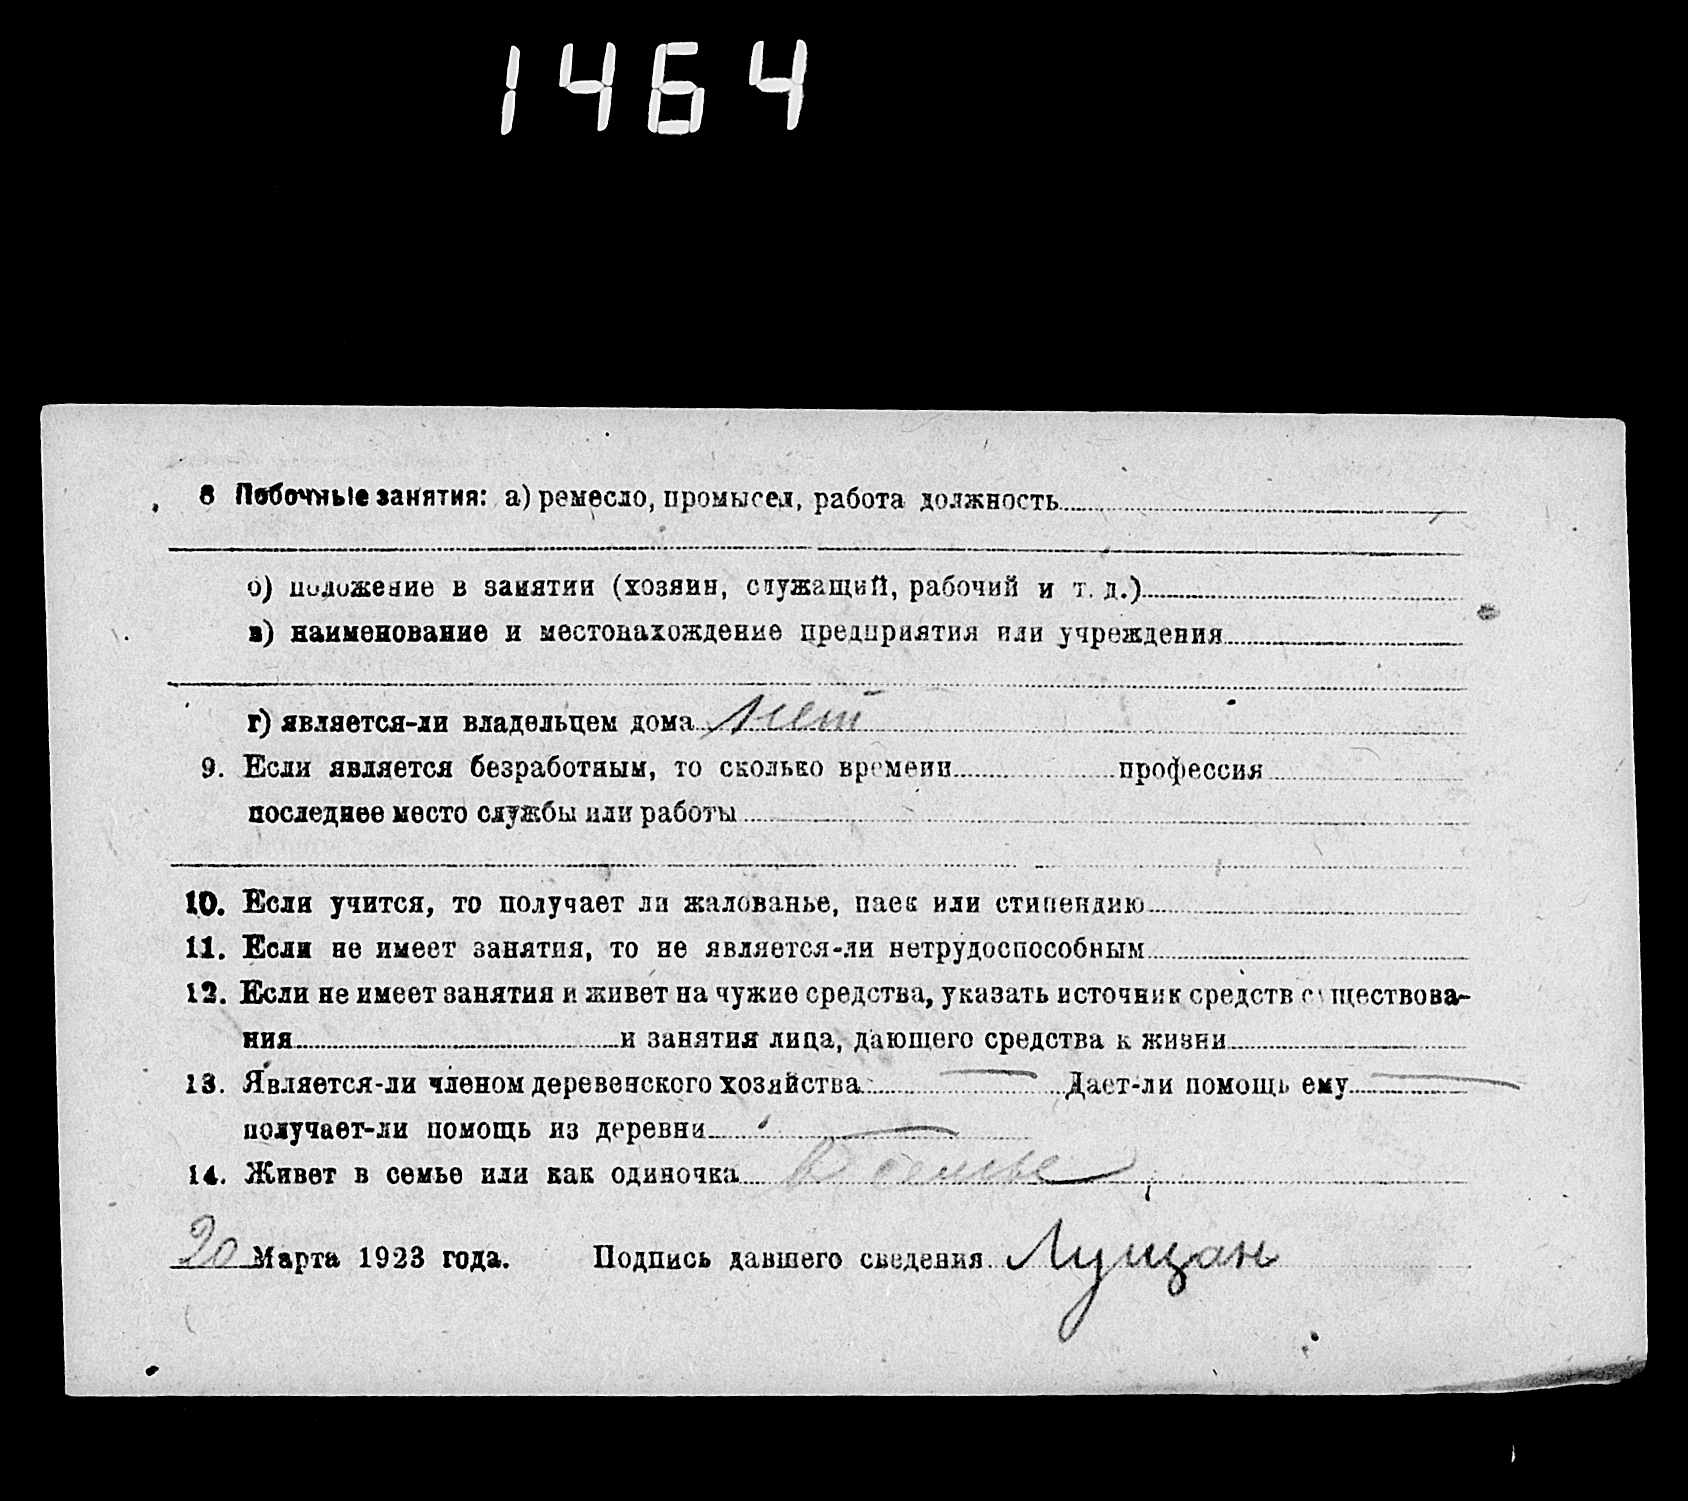 1464
8 Побочные занятия: а) ремесло, промысел, работа должность
б) положение в занятии (хозяин, служащий, рабочий и т. д.)
в) наименование и местонахождение предприятия или учреждения
г) является-ли владельцем дома нет
9. Если является безработным, то сколько времени профессия
последнее место службы или работы
10. Если учится, то получает ли жалованье, паек или стипендию
11. Если не имеет занятия, то не является-ли нетрудоспособным
12. Если не имеет занятия и живет на чужие средства, указать источник средств существова-
ния и занятия лица, дающего средства к жизни
13. Является-ли членом деревенского хозяйства — Дает-ли помощь ему —
получает-ли помощь из деревни —
14. Живет в семье или как одиночка В семье
20 Марта 1923 года. Подпись давшего сведения Лущан